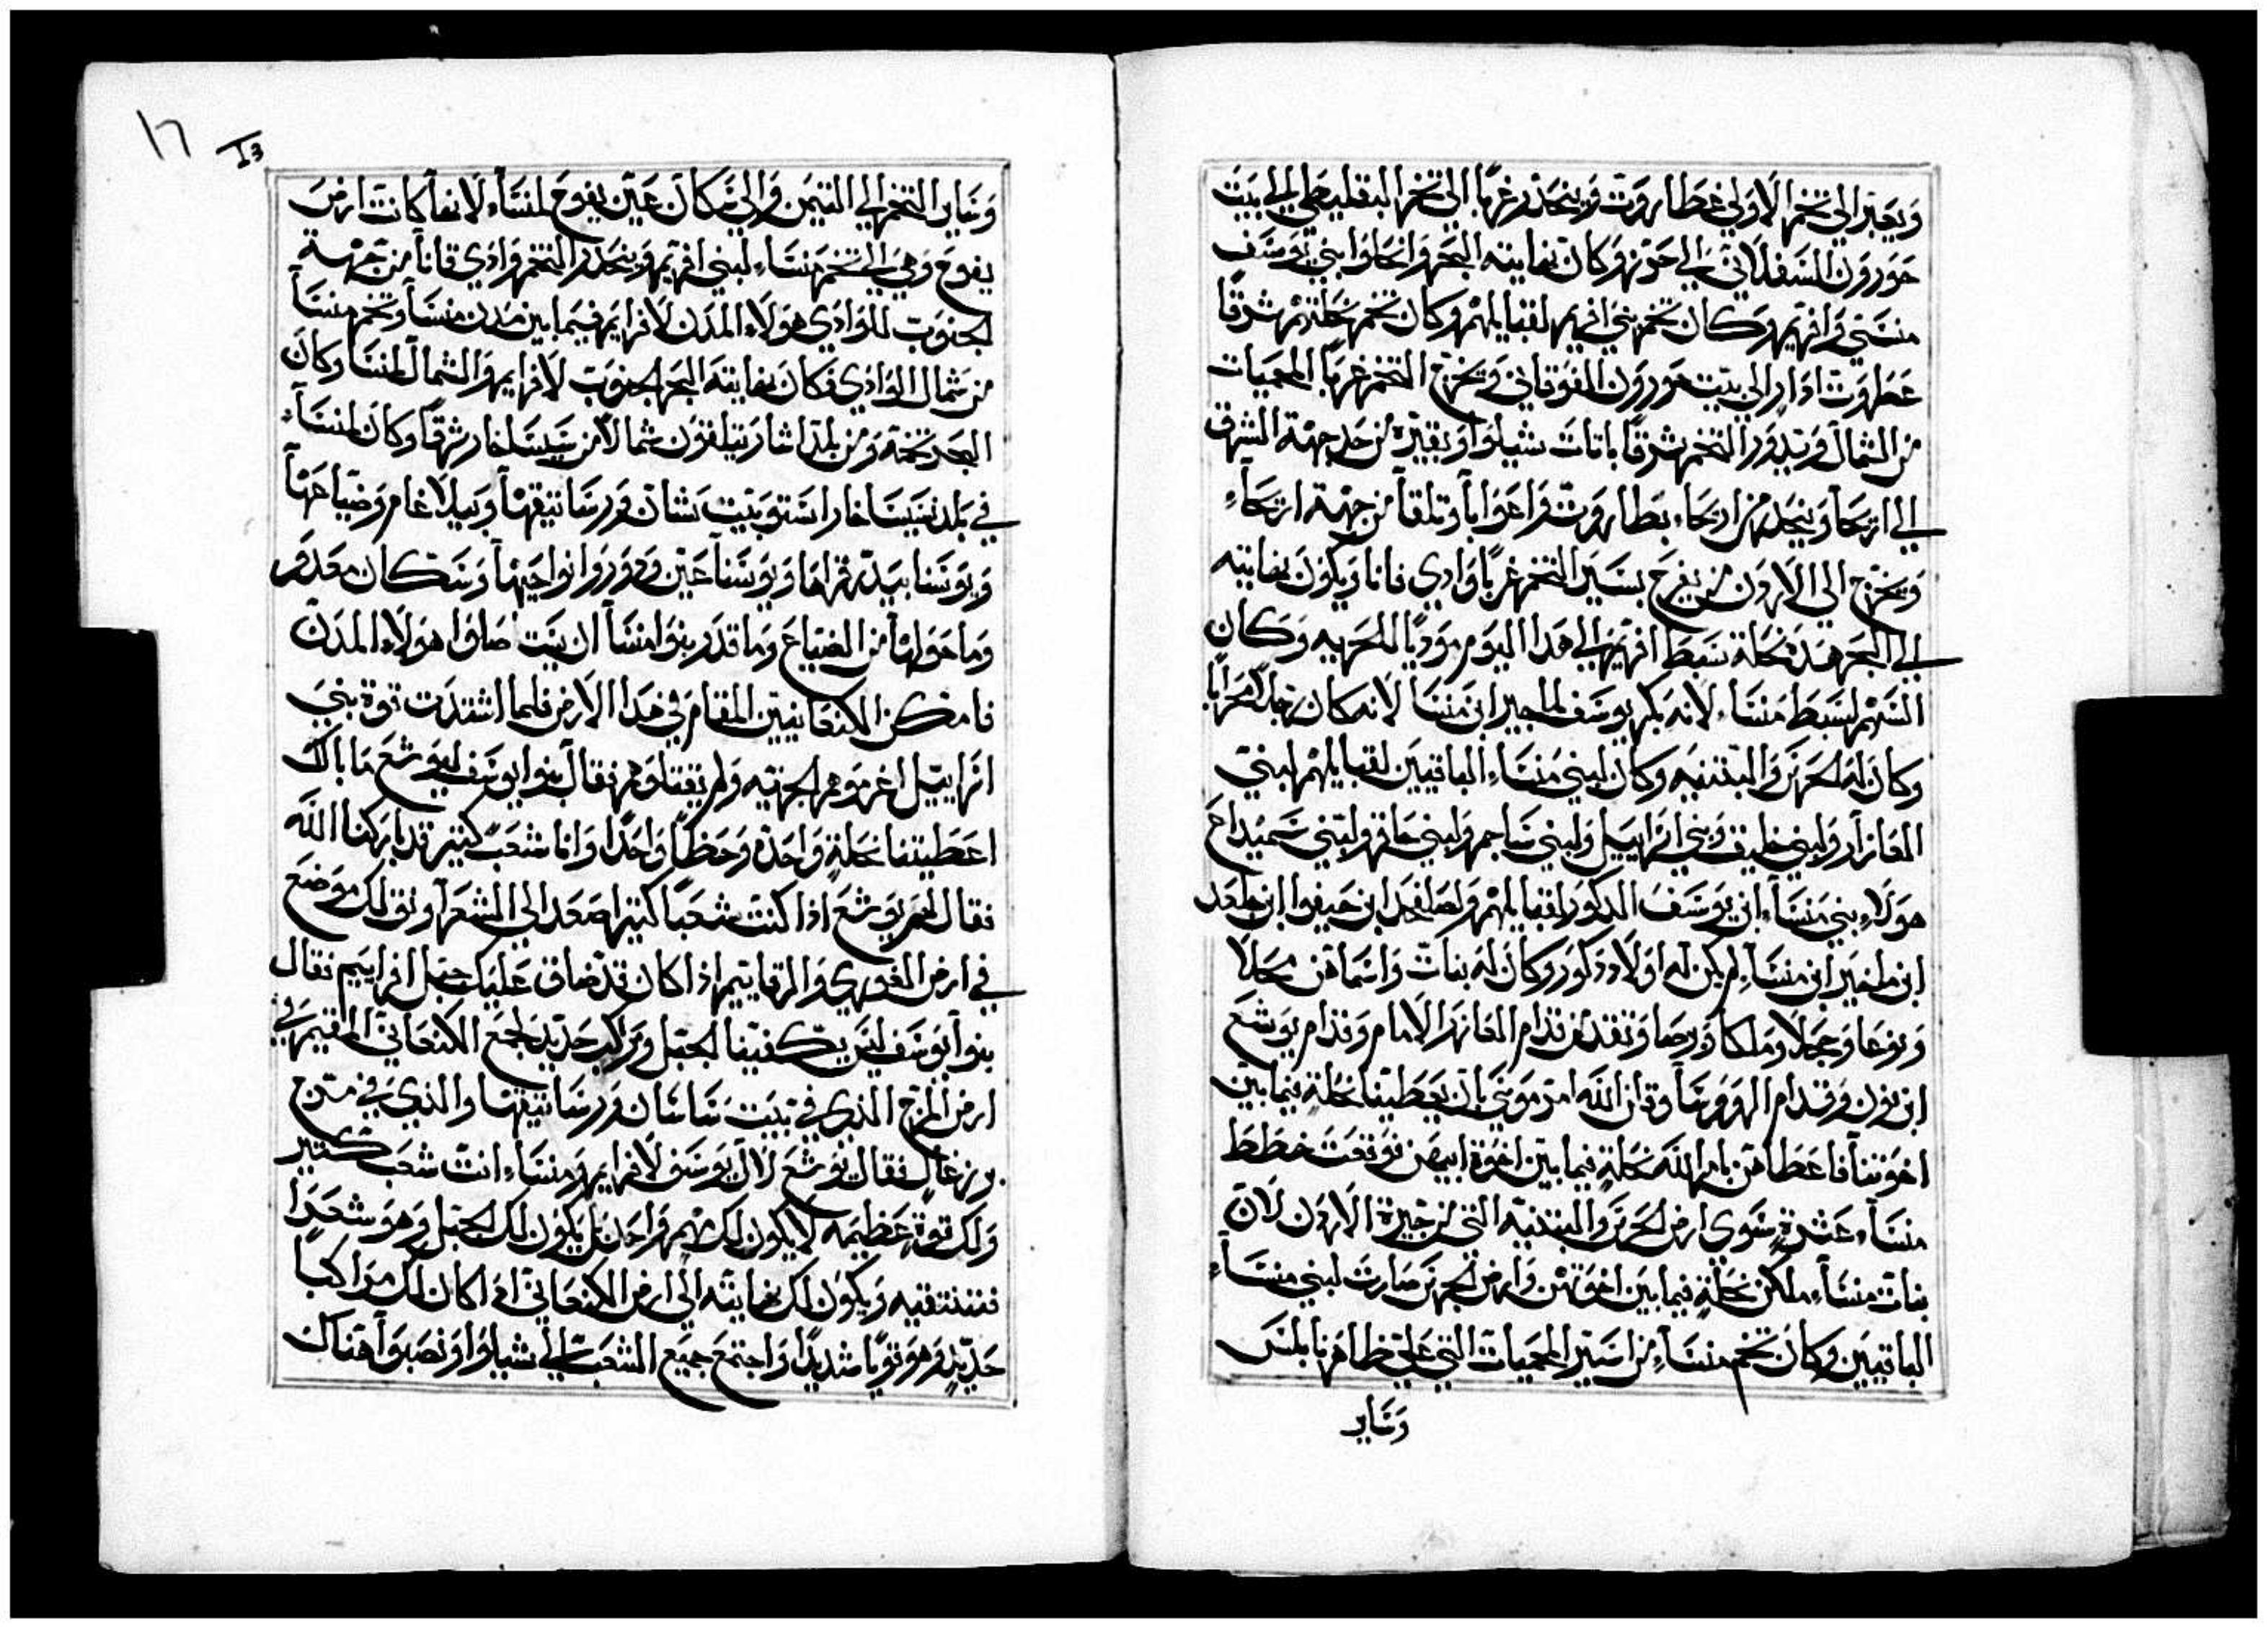 ويعبر الي تخم الاولي غطاروت وينحدر غربا الي تخم البقليطي الي بيت
حورون السفلاني الي حزر وكان نهايته البحر وانحلوا بني يوسف
منسي وافريم وكان تخم بني افريم لقبايلهم وكان تخم نحلتهم شرقا
عطروت ادار الي بيت حورون الفوقاني ويخرج التخم غربا المحميات
من الشمال ويدور التخم شرقا باتات شيلوا ويعبره من حد جهة الشرق
الي اريحا وينحدر من اريحاء بطاروت واعوابا وتلقا من جهة اريحاء
ويخرج الي الاردن من يفرح يسير التخم غربا وادي قانا ويكون نهايته
الي البحر هذه نحلة سبط افريم الي هذا اليوم مودبا للحربه وكان
السهم لسبط منساء لانه بكر يوسف لماجير ابن منسا لانه كان رجلا محرابا
وكان له الجرش والبتنيه وكان لبني منساء الباقيين لقبايلهم لبني
العازار ولبني خليق وبني ازاييل ولبني ساجم ولبني حافر ولبني سميداح
هولاء بني منساء ابن يوسف الدكور لقبايلهم ولصلفحد ابن حيفوا ابن جلعد
ابن ماخير ابن منساء لم يكن له اولاد ذكور وكان له بنات واسماهن محلا
ونوعا وحجلا وملكا وترصا وتقدمن قدام العازر الامام وقدام يوشع
ابن نون وقدام الهوورسا وقلن الله امر موسي بان يعطينا نحلة فيما بين
اخوتنا فاعطاهن بامر الله نحلة فيما بين اخوة ابيهن فوقعت خطط
منساء عشرة سوي ارض الجرش والبتنيه التي من حيرة الاردن لان
بنات منساء ملكن نحلة فيما بين اخوتهن وارض الجرش صارت لبني منساء
الباقيين وكان تخم منساء من اسير المحميات التي علي ظاهر نابلس
وساير
١٦
13
وساير التخم الي التيمن والي مكان عين يفوح لمنساء لانها كانت ارض
يفوح وهي الي تخم منساء لبني افريم وينحدر التخم وادي قانا من جهة
الجنوب للوادي هولاء المدن لافرايم فيما بين مدن منسا وتخم منسا
من شمال الوادي فكان نهايته البحر الجنوب لافرايم والشمال لمنسا وكان
البحر تخمه ومن بلد اشار يتلقون شمالا من يساخار شرقا وكان لمنساء
في بلد يساخار استو بيت شان ورساتيقها وبيلاعام وضياعها
ويوسنا بيد ثراها ويوسنا عين ودور ونواحيها وسكان معدور
وما حولها من الضياع وما قدر بنوا منسا ان بيت صلوا هولاء المدن
فامكن الكنعانيين المقام في هدا الارض فلما اشتدت قوة بني
اسراييل اغرموهم الجزيه ولم يقتلوهم فقال بنوا يوسف ليوشع ما بالك
اعطيتنا نحلة واحدة وحظا واحدا وانا شعب كثير قد باركنا الله
فقال لهم يوشع اذا كنت شعبا كثير اصعد الي الشعرا ونق لك موضع
في ارض الفوري والرفاييم اذا كان قد ضاق عليك جبل افراييم فقال
بنوا يوسف ليس يكفينا الجبل ومراكب حديد لجمع الكنعاني المقيم في
ارض المرج الذي في بيت ساسان ورساتيقها والذي في مرج
يزرعال فقال يوشع لال يوسف لافرايم ومنساء انت شعب كثير
ولك قوة عظيمه لا يكون لك سهم واحد بل يكون لك الجبل وهو شعرا
فتنتقيه ويكون لك نهايته الي ارض الكنعاني اذا كان لك مراكبا
حديد وهو قويا شديدا واجتمع جميع الشعب الي شيلوا ونصبوا هناك